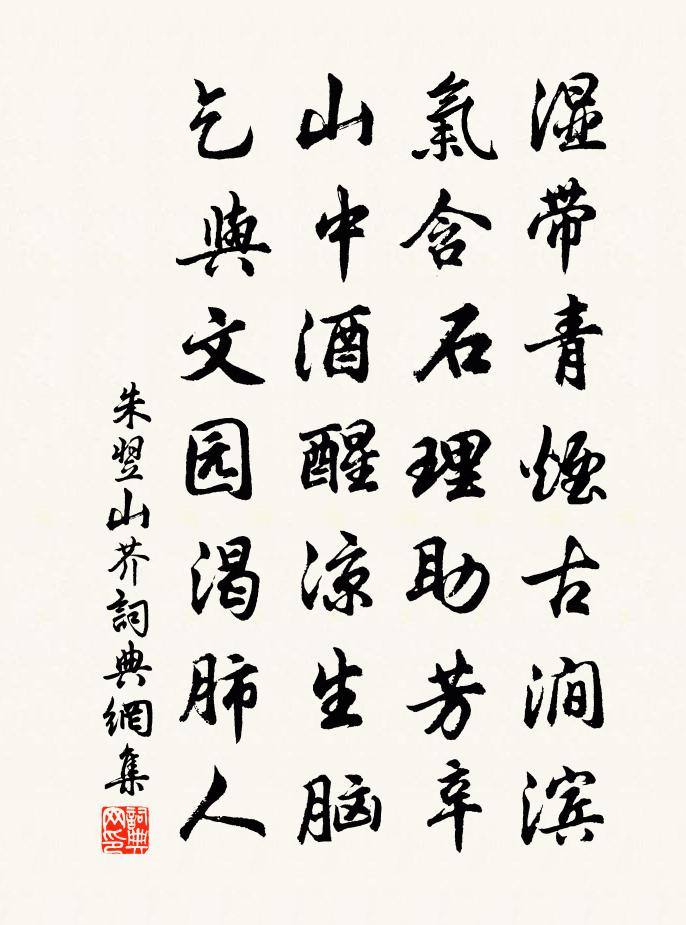 湿带青煙古涧滨
氣含石理助芳辛
山中酒醒凉生脑
乞與文园渴肺人
朱翌山芥詞典網集
詞典网印